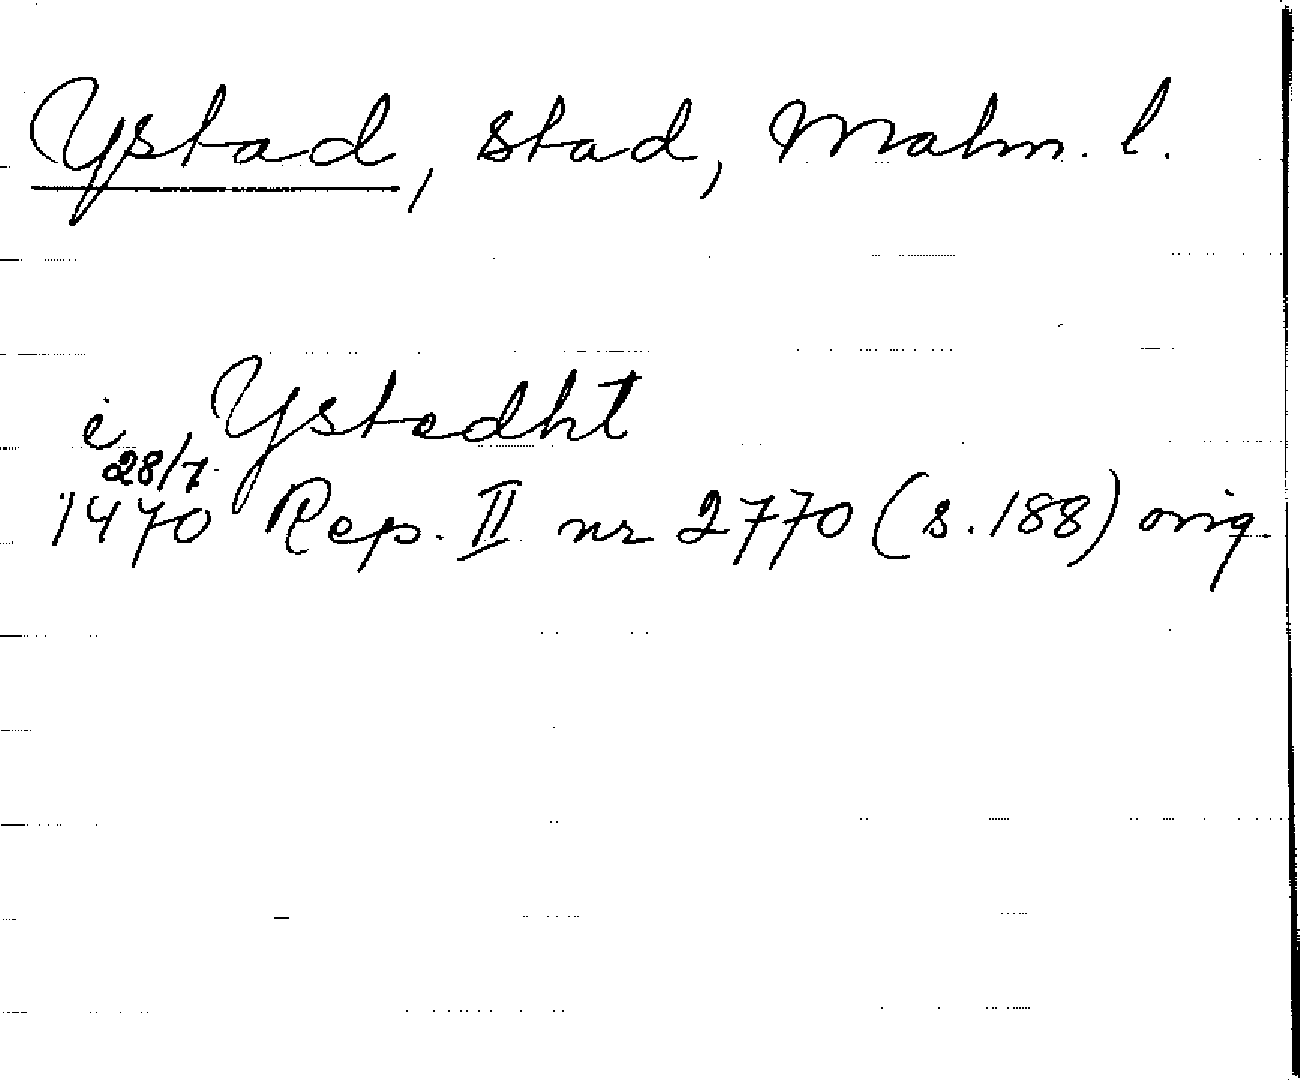 Ystad, stad, Malm. l.
i Ystedht
28/7
1470 Rep. II nr 2770 (s. 188) orig.